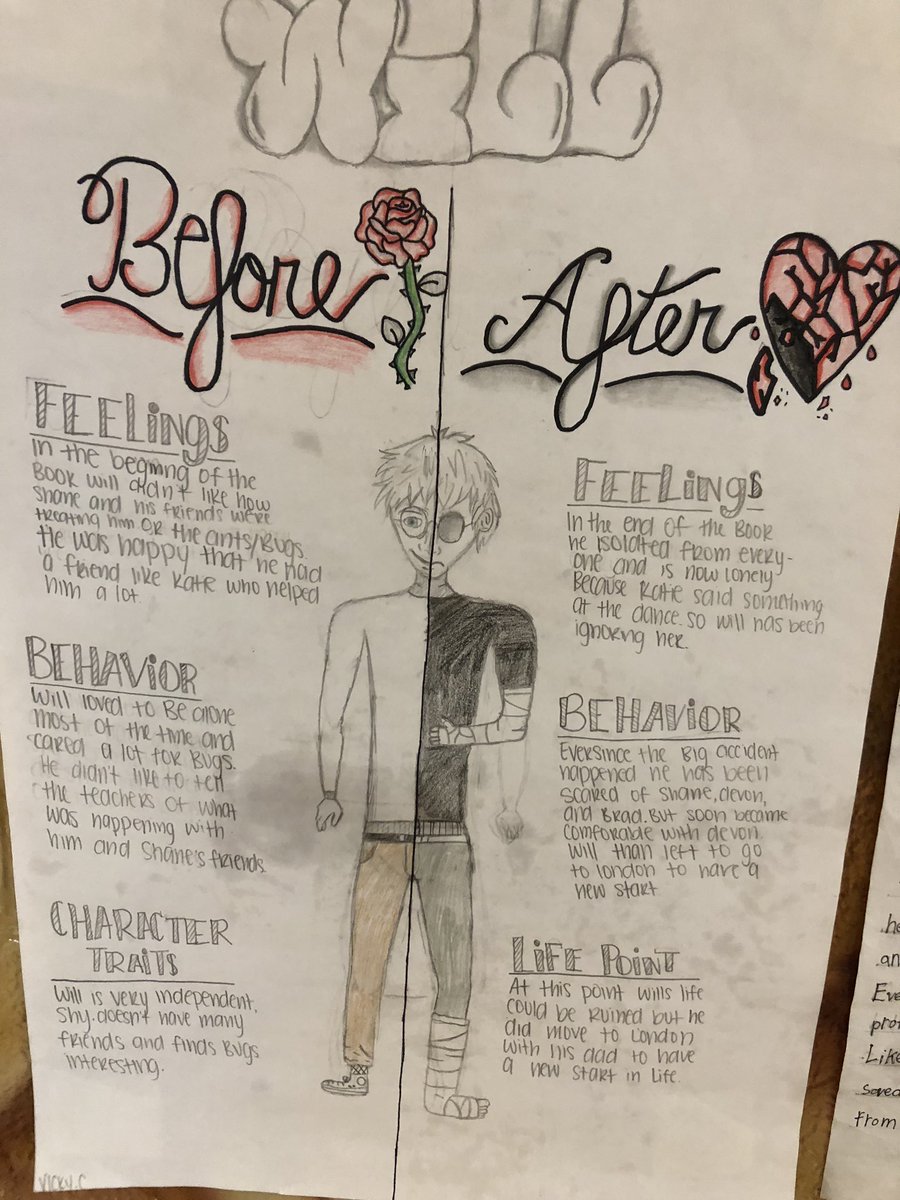 WILL
Before
FEELings
In the begining of the
Book will didn't like how
Shane and his friends were
treating him or the ants/Bugs.
He was happy that he had
a friend like Katie who helped
him a lot.
BEHAViOR
Will loved to Be alone
most of the time and
cared a lot for Bugs.
He didn't like to tell
the teachers of what
was happening with
him and Shane's friends.
CHARACTER
TRAiTS
Will is very independent,
shy. doesn't have many
friends and finds Bugs
interesting.
Vicky.C
After
FEELings
In the end of the Book
he isolated from every-
one and is now lonely
Because Katie said something
at the dance. So will has been
ignoring her.
BEHAViOR
Eversince the Big accident
happened he has been
scared of Shane, devon,
and Brad. But soon became
comforable with devon.
Will than left to go
to london to have a
new start
LiFE POiNT
At this point wills life
could be ruined but he
did move to London
with his dad to have
a new start in Life.
he
an
Eve
pro
Like
saved
from